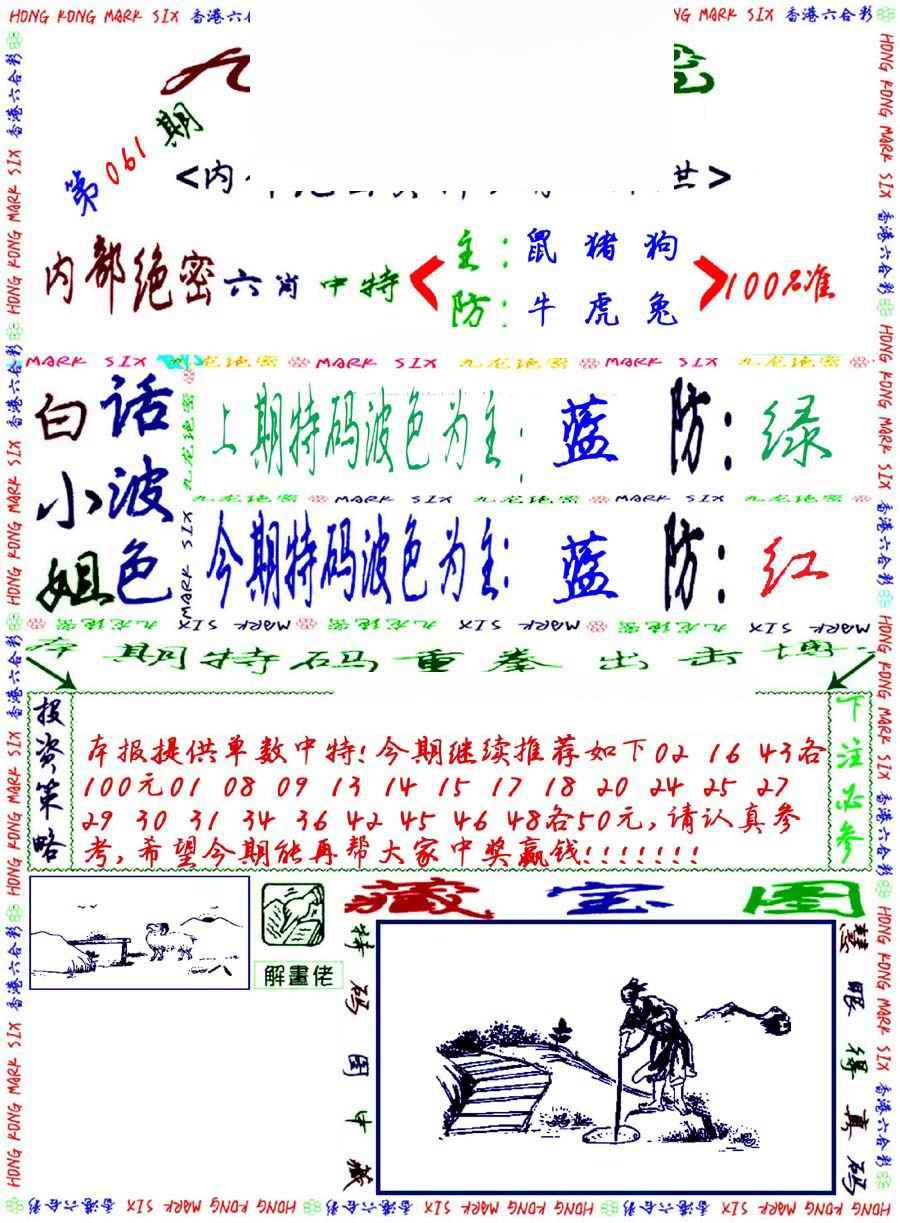 HONG KONG MARK SIX 香港六合彩
第061期
内部绝密六肖中特
主:鼠猪狗
防:牛虎兔
100%准
MARK SIX 九龙绝密 MARK SIX 九龙绝密 MARK SIX 九龙绝密
白话小波姐色
上期特码波色为主:蓝 防:绿
九龙绝密 MARK SIX 九龙绝密 MARK SIX 九龙绝密
今期特码波色为主:蓝 防:红
MARK SIX 九龙绝密 MARK SIX 九龙绝密 MARK SIX 九龙绝密
期特码重拳出击
投资策略
本报提供单数中特!今期继续推荐如下02 16 43各
100元01 08 09 13 14 15 17 18 20 24 25 27
29 30 31 34 36 42 45 46 48各50元,请认真参
考,希望今期能再帮大家中奖赢钱!!!!!!!
下注必参
解畫佬
藏宝图
特码图中藏
慧眼得真码
HONG KONG MARK SIX 香港六合彩